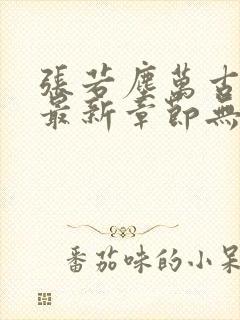 張若塵萬古
最新章節無
番茄味的小呆